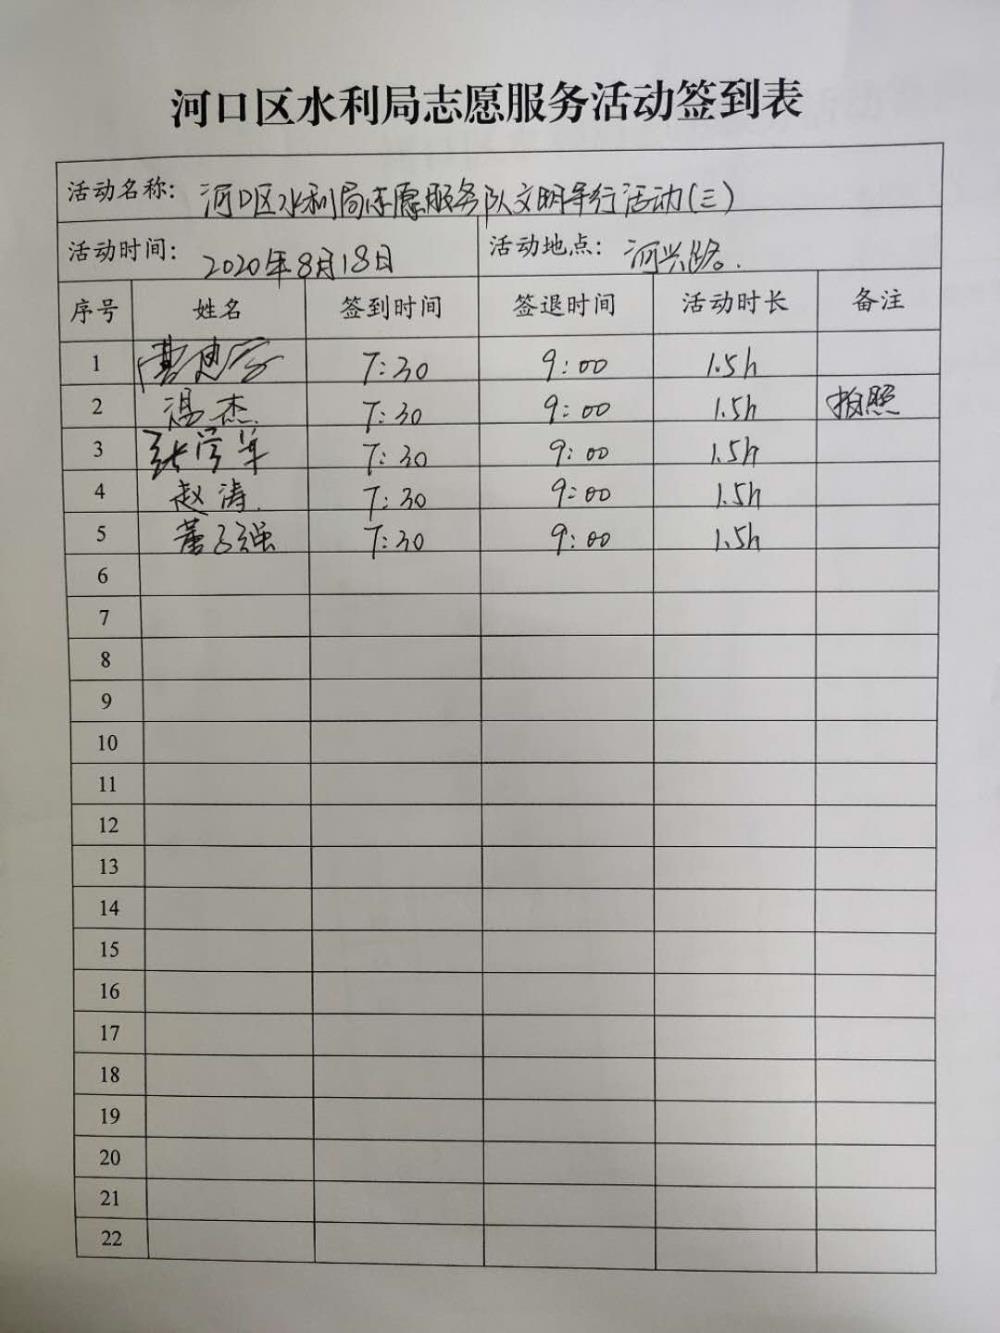 河口区水利局志愿服务活动签到表
活动名称: 河口区水利局志愿服务队文明导行活动(三)
活动时间: 2020年8月18日 活动地点: 河兴路.
序号 姓名 签到时间 签退时间 活动时长 备注
1 7:30 9:00 1.5h
2 温杰 7:30 9:00 1.5h 拍照
3 张学军 7:30 9:00 1.5h
4 赵涛 7:30 9:00 1.5h
5 董子强 7:30 9:00 1.5h
6
7
8
9
10
11
12
13
14
15
16
17
18
19
20
21
22